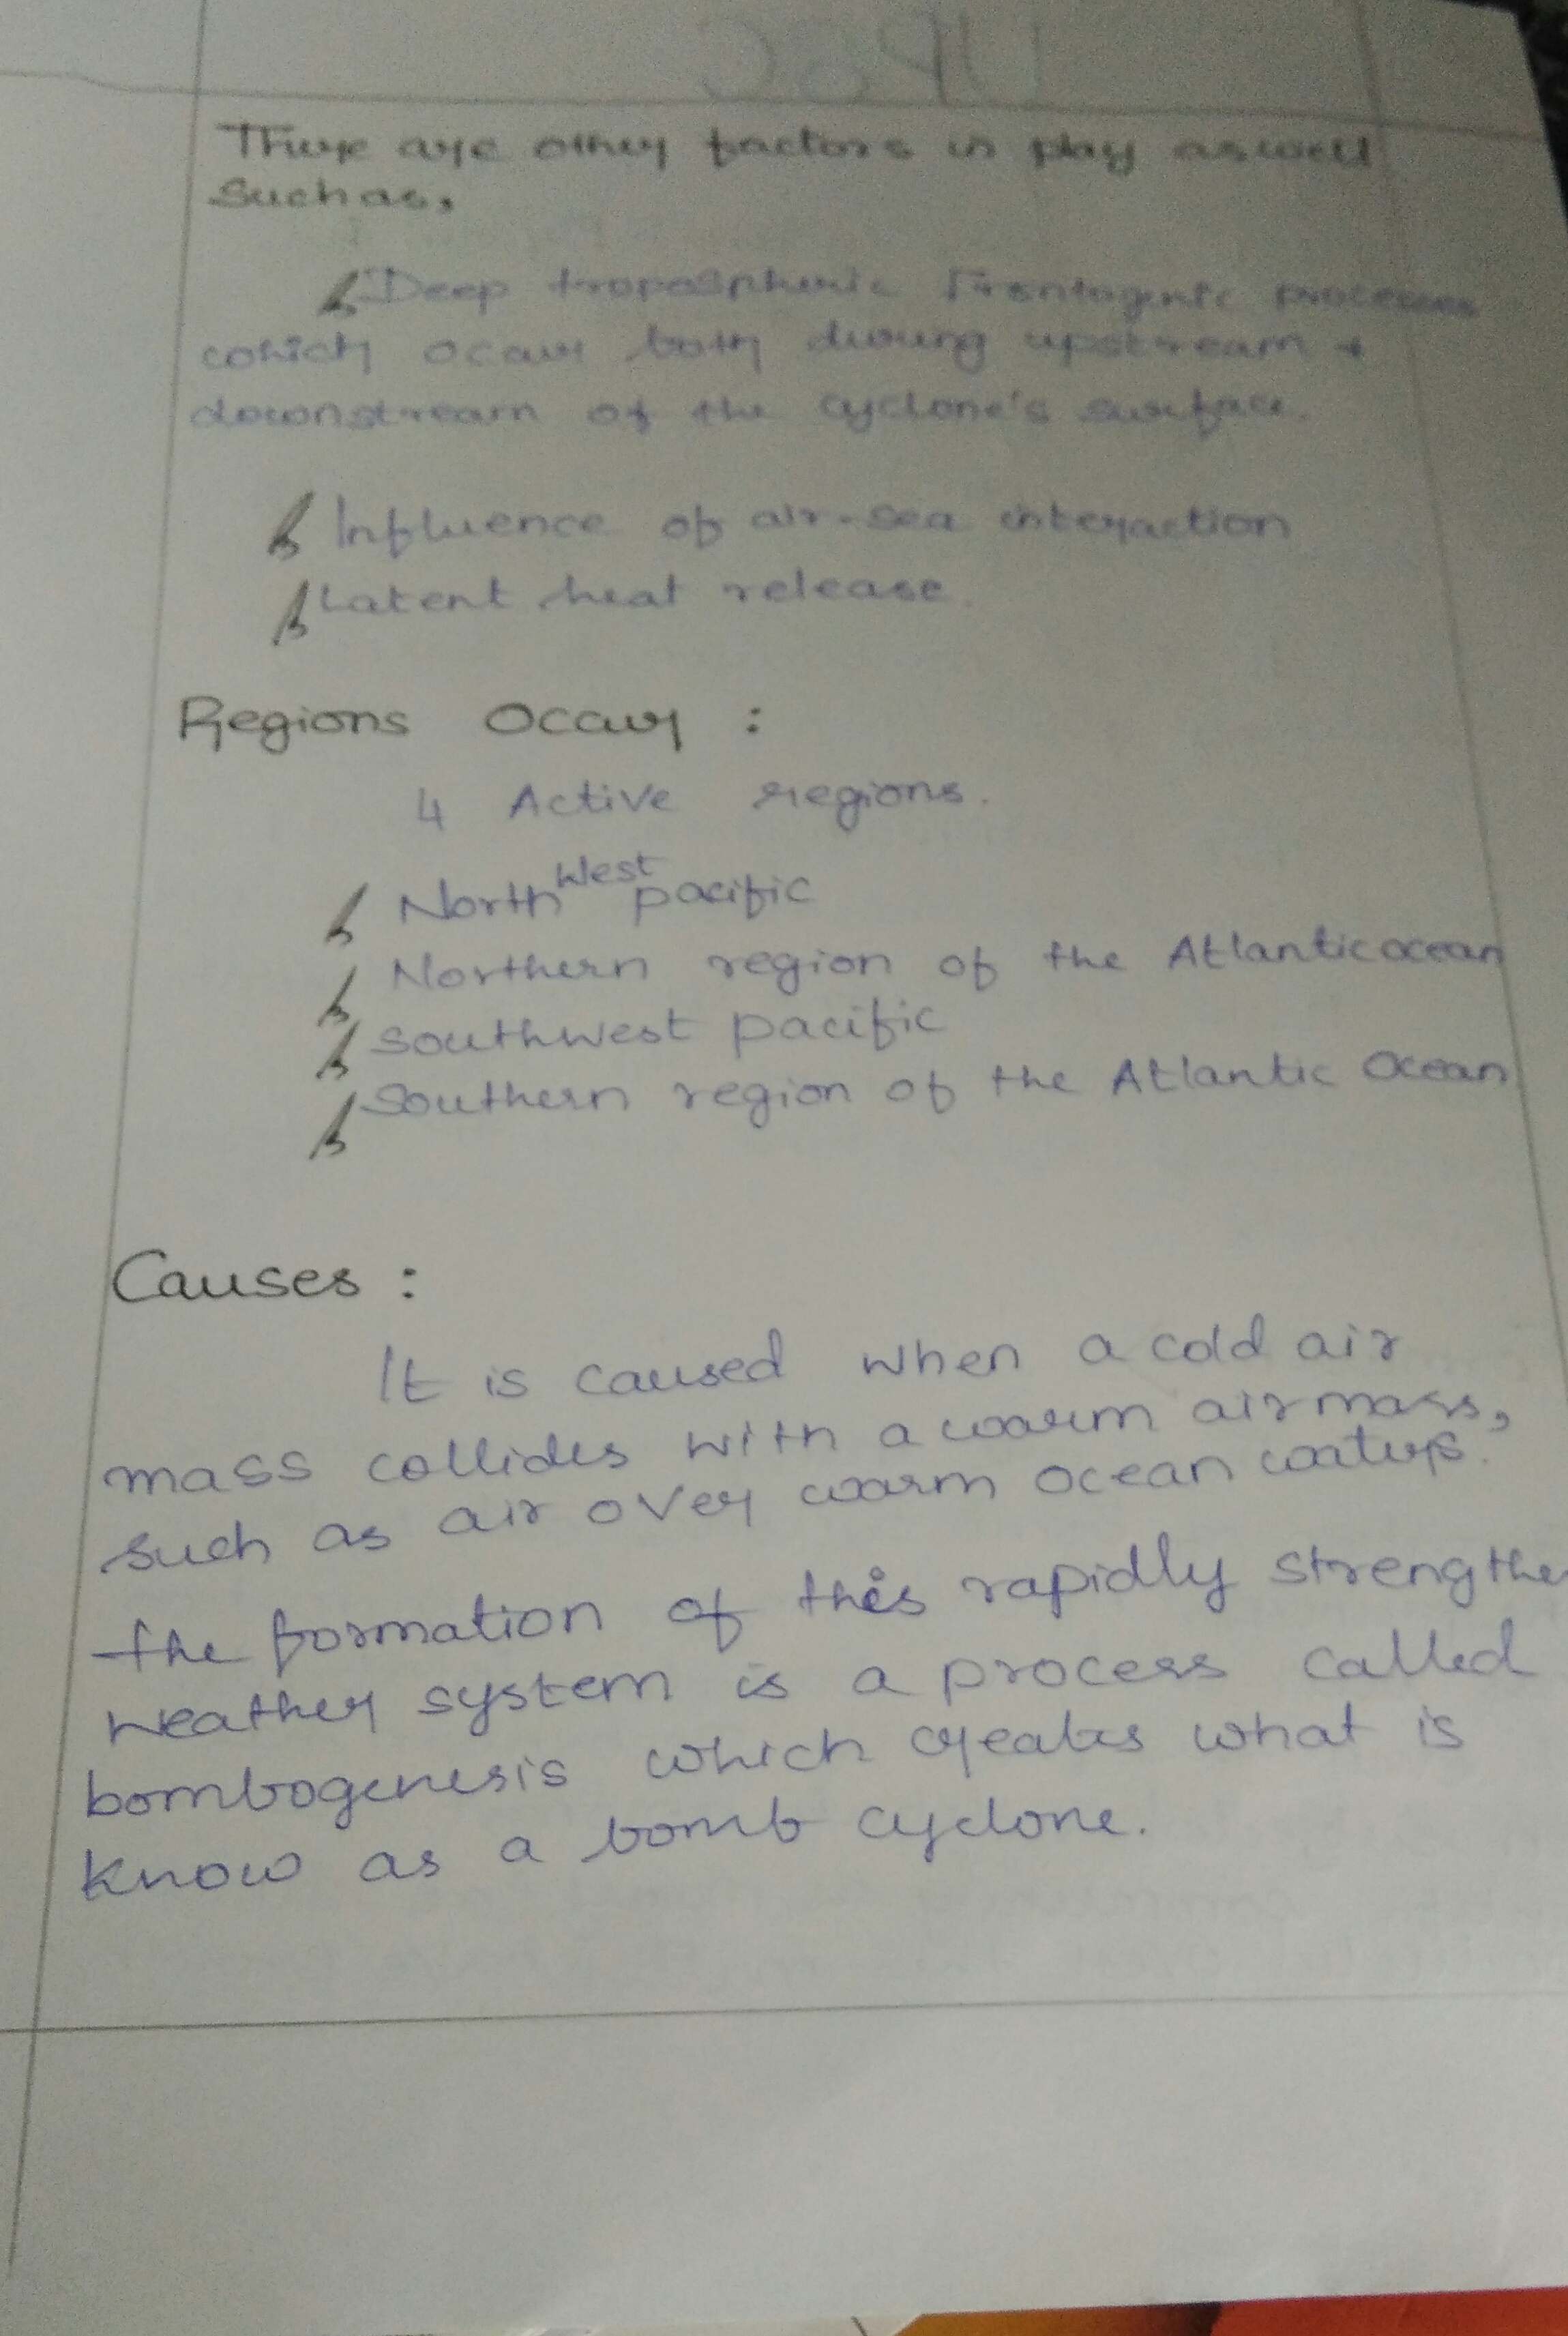 UPSC
There are other factors in play aswell
Such as,
Deep tropospheric Frontogentic processes
which occur both during upstream +
downstream of the cyclone's surface.
Influence of air-sea interaction
Latent heat release.
Regions Occur :
4 Active regions.
North West pacific
Northern region of the Atlantic ocean
Southwest pacific
Southern region of the Atlantic Ocean
Causes :
It is caused when a cold air
mass collides with a warm air mass,
such as air over warm ocean waters.
The formation of this rapidly strengthe
weather system is a process called
bombogenesis which creates what is
know as a bomb cyclone.